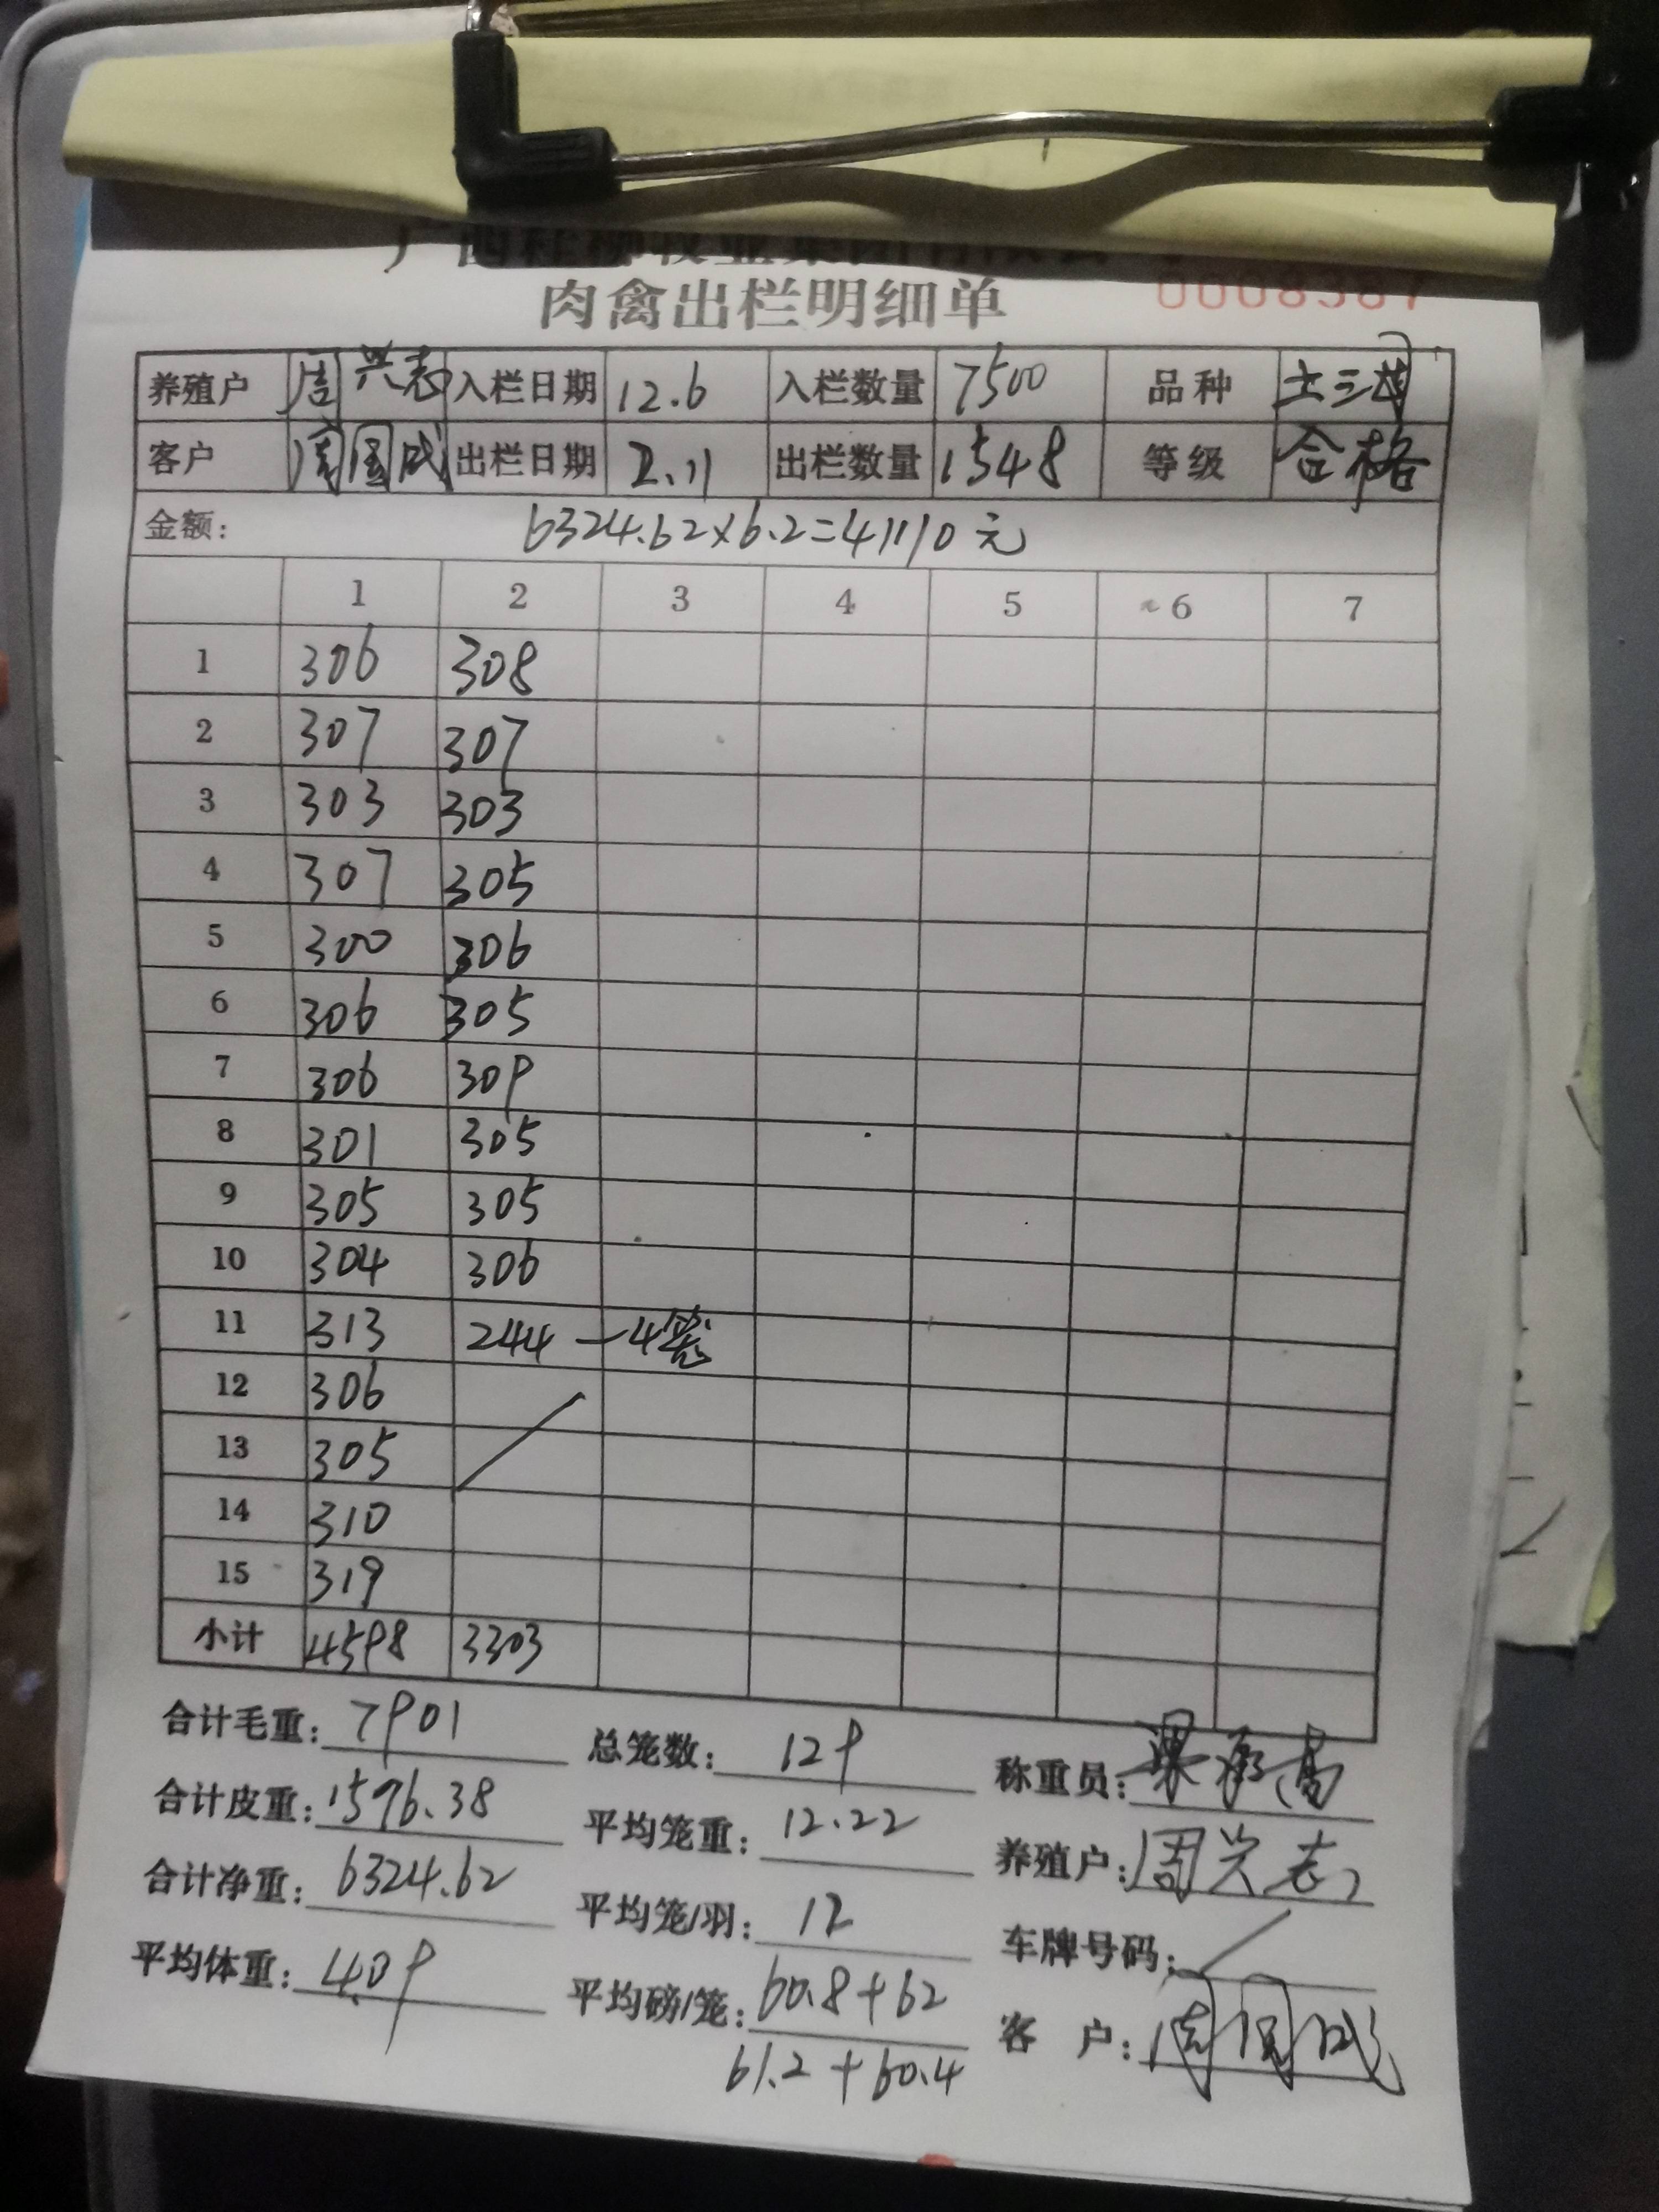 肉禽出栏明细单
养殖户 周兴志 入栏日期 12.6 入栏数量 7500 品种
客户 周国成 出栏日期 2.11 出栏数量 1548 等级 合格
金额: 6324.62×6.2=41110元
1 2 3 4 5 6 7
1 306 308
2 307 307
3 303 303
4 307 305
5 300 306
6 306 305
7 306 309
8 301 305
9 305 305
10 304 306
11 313 244 —4笼
12 306
13 305
14 310
15 319
小计 4598 3303
合计毛重: 7901 总笼数: 129 称重员:
合计皮重: 1576.38 平均笼重: 12.22 养殖户: 周兴志
合计净重: 6324.62 平均笼/羽: 12 车牌号码: /
平均体重: 4.09 平均磅/笼: 60.8+62 客 户: 周国成
61.2+60.4